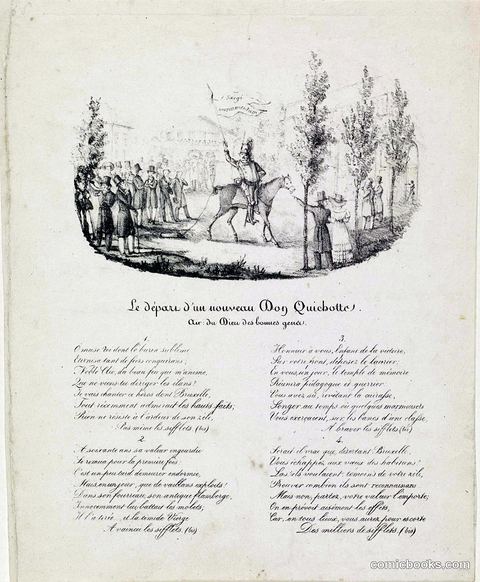 Le départ d'un nouveau Don Quichotte.
Air: du Dieu des bonnes gens.
1.
O muse toi dont le burin sublime
Eternisa tant de fiers conquérans;
Noble Clio, du beau feu qui m'anime,
Qui ne viens-tu diriger les élans!
Je vais chanter ce héros dont Bruxelle,
Tout récemment admirait les hauts faits;
Rien ne résiste à l'ardeur de son zèle,
Pas même les sifflets (bis)
2.
A soixante ans sa valeur engourdie
Se remua pour la première fois;
C'est un peu tard demeurer endormie,
Mais, en un jour, que de vaillans exploits!
Dans son fourreau, son antique flamberge,
Innocemment lui battait les molets;
Il l'a tirée, et la timide Vierge
A vaincu les sifflets. (bis)
3.
Honneur à vous, Enfant de la victoire,
Sur votre front, déposez le laurier;
En vous, un jour, le temple de mémoire
Réunira pédagogue et guerrier
Vous avez su, revêtant la cuirasse,
Songer au temps où quelques marmousets
Vous exerçaient, sur les bancs d'une classe,
A braver les sifflets (bis)
4.
Serait-il vrai que, désertant Bruxelle,
Vous échappiez aux vœux des habitans!
Las! ils voulaient témoins de votre zèle,
Prouver combien ils sont reconnaissans
Mais non; partez, votre valeur l'emporte;
On en prévoit aisément les effets,
Car, en tous lieux, vous aurez pour escorte
Des milliers de sifflets. (bis)
comicbooks.com